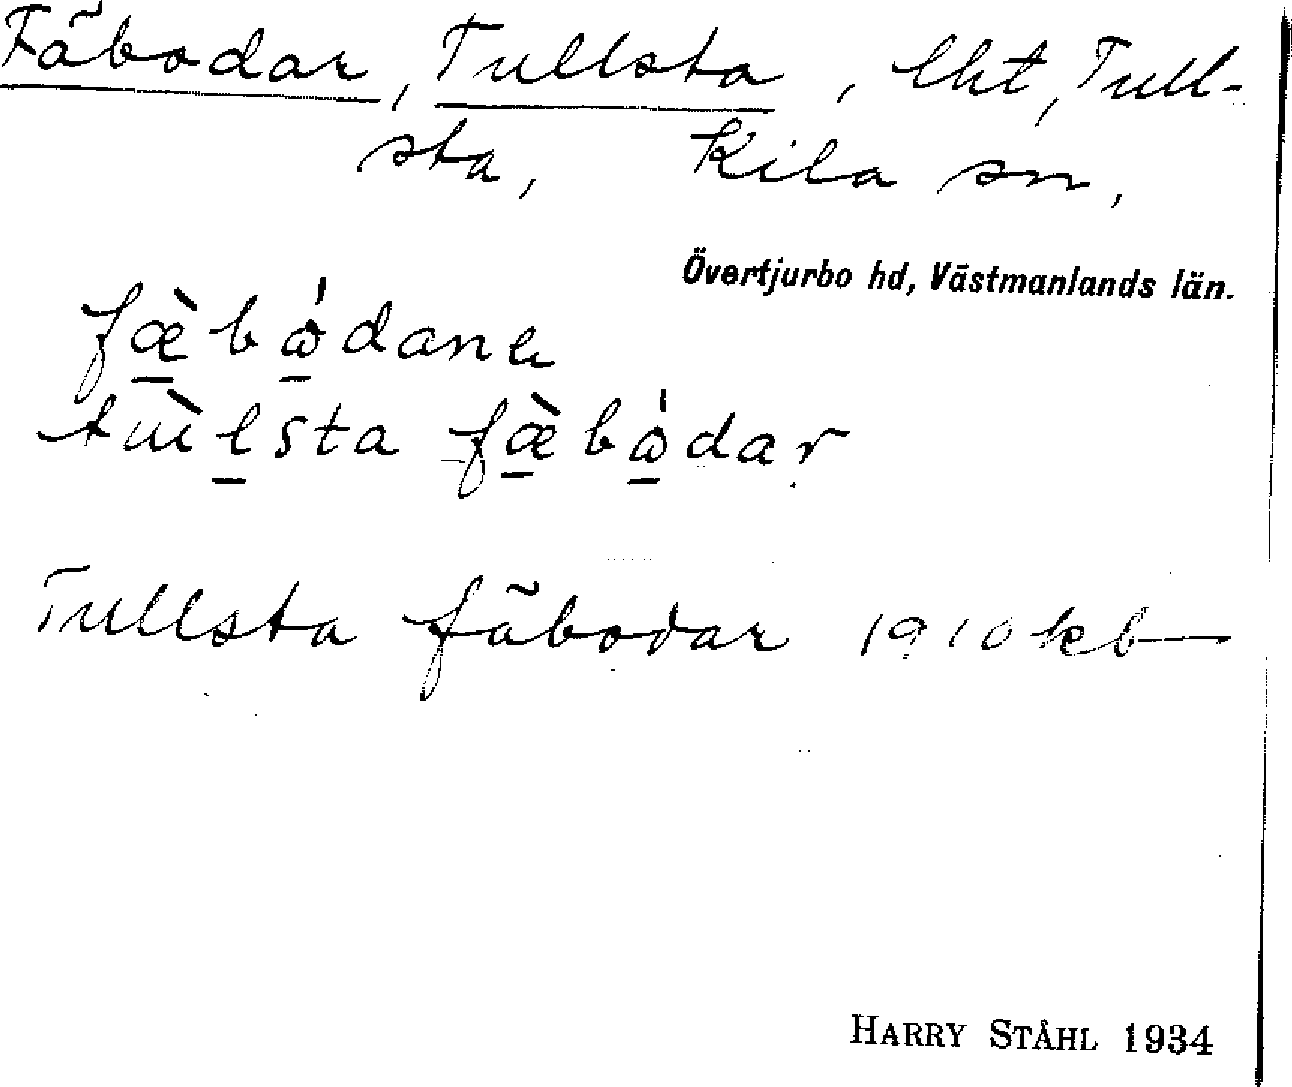 Fäbodar, Tullsta, lht, Tull-
sta, Kila sn,
Övertjurbo hd, Västmanlands län.
fæ̀bω̇́danɐ
tɯ̀lsta fæ̀bω̇́dar
Tullsta fäbodar 1910 kb
HARRY STÅHL 1934